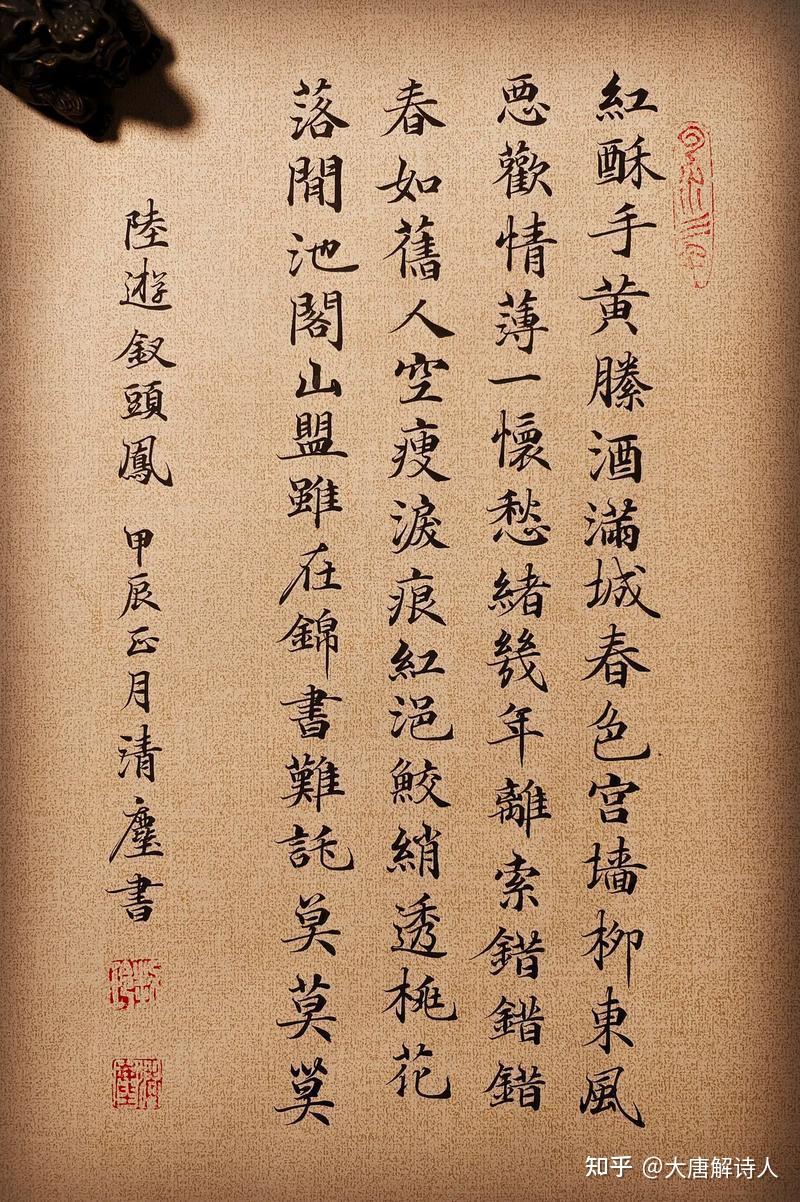 紅酥手黄縢酒滿城春色宫墙柳東風
悪歡情薄一懷愁緒幾年離索錯錯錯
春如舊人空瘦淚痕紅浥鮫綃透桃花
落閒池閣山盟雖在錦書難託莫莫莫
陸遊釵頭鳳 甲辰正月清塵書
清塵
知乎 @大唐解诗人